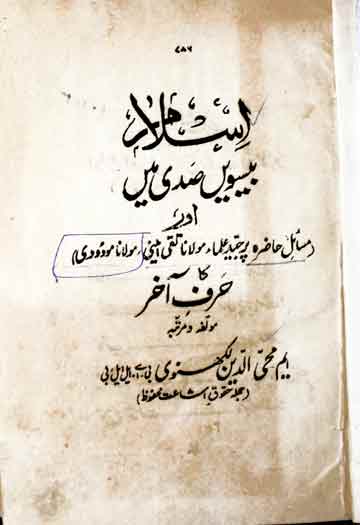 ۷۸۶
اسلام
بیسویں صدی میں
اور
(مسائلِ حاضرہ پر جیّد علماء مولانا تقی امینی، مولانا مودودی)
کا
حرفِ آخر
مولفہ و مرتبہ
ایم محی الدین لکھنوی بی۔اے، ایل ایل بی
(جملہ حقوقِ اشاعت محفوظ)